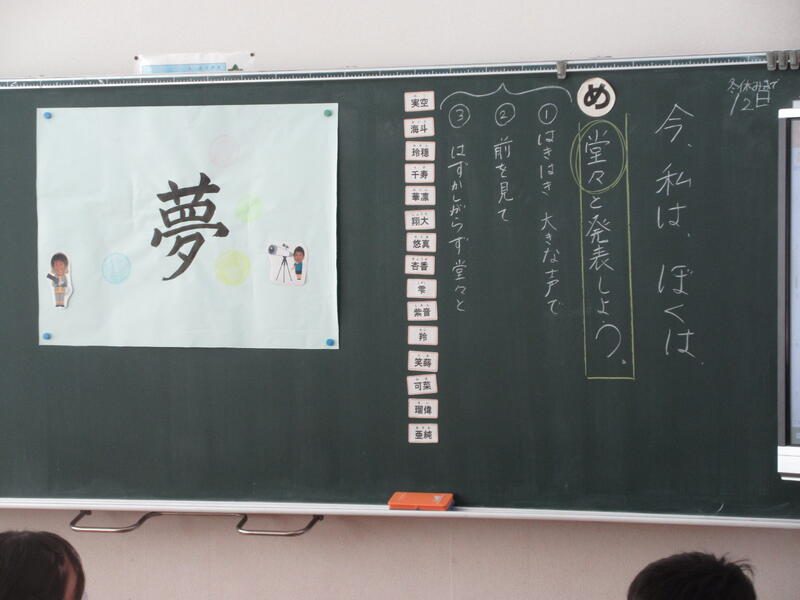 冬休みまで
12日
今、私は、ぼくは、
め
堂々と発表しよう。
①はきはき 大きな声で
②前を見て
③はずかしがらず堂々と
実空
海斗
玲穏
千寿
華凛
翔大
悠真
杏香
雫
紫音
羚
笑蒔
可菜
瑠偉
亜純
夢